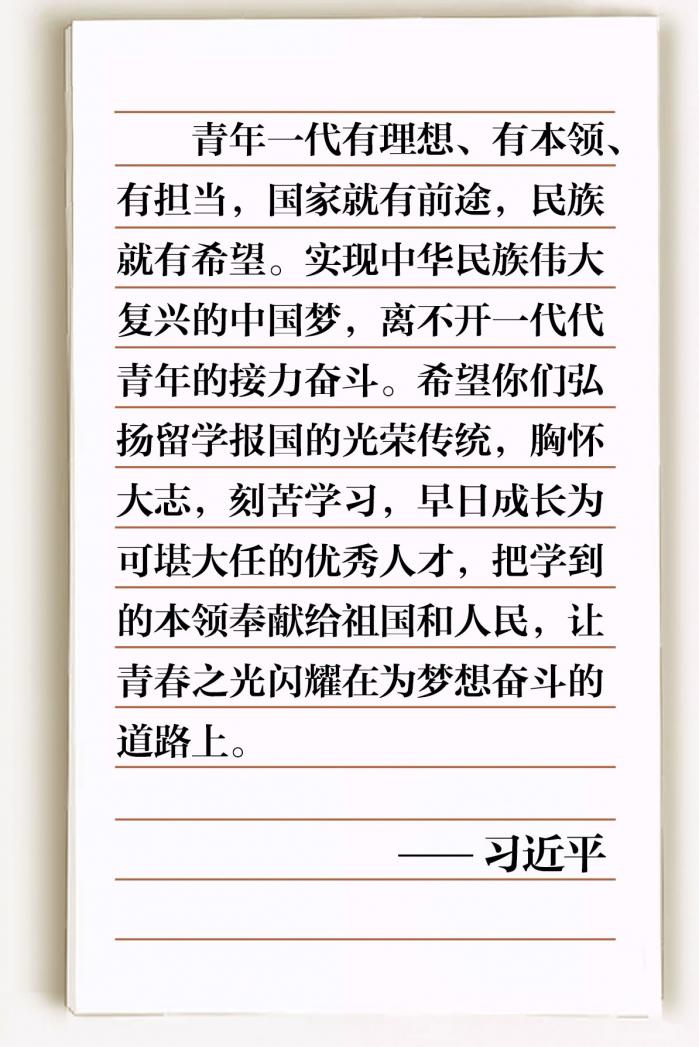 青年一代有理想、有本领、
有担当，国家就有前途，民族
就有希望。实现中华民族伟大
复兴的中国梦，离不开一代代
青年的接力奋斗。希望你们弘
扬留学报国的光荣传统，胸怀
大志，刻苦学习，早日成长为
可堪大任的优秀人才，把学到
的本领奉献给祖国和人民，让
青春之光闪耀在为梦想奋斗的
道路上。
—— 习近平